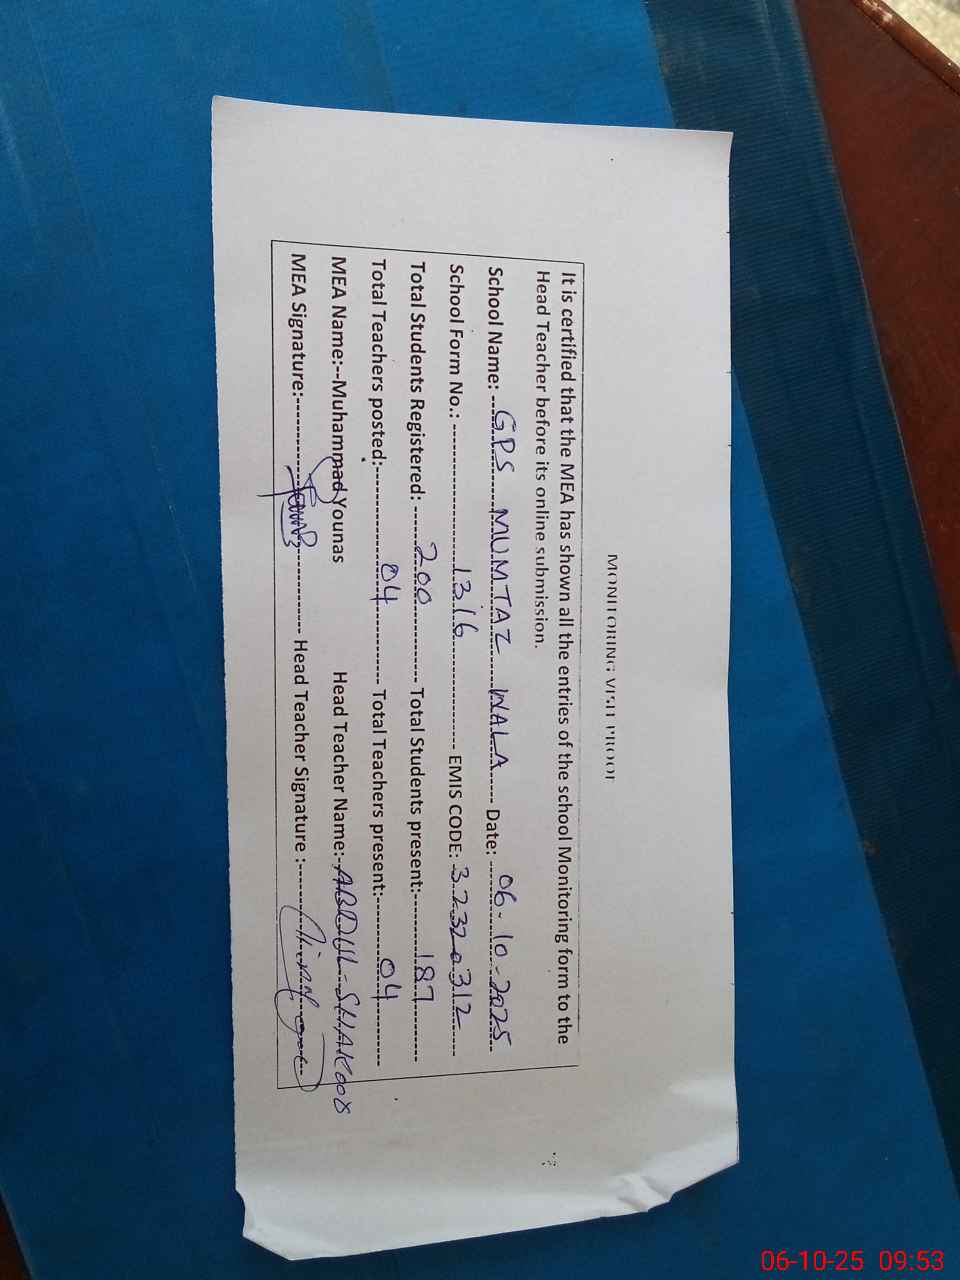 MONITORING VISIT PROOF
It is certified that the MEA has shown all the entries of the school Monitoring form to the
Head Teacher before its online submission.
School Name: GPS MUMTAZ WALA Date: 06-10-2025
School Form No.: 1316 EMIS CODE: 32320312
Total Students Registered: 200 Total Students present: 187
Total Teachers posted: 04 Total Teachers present: 04
MEA Name:--Muhammad Younas Head Teacher Name:- ABDUL SHAKOOR
MEA Signature: Head Teacher Signature :
06-10-25 09:53